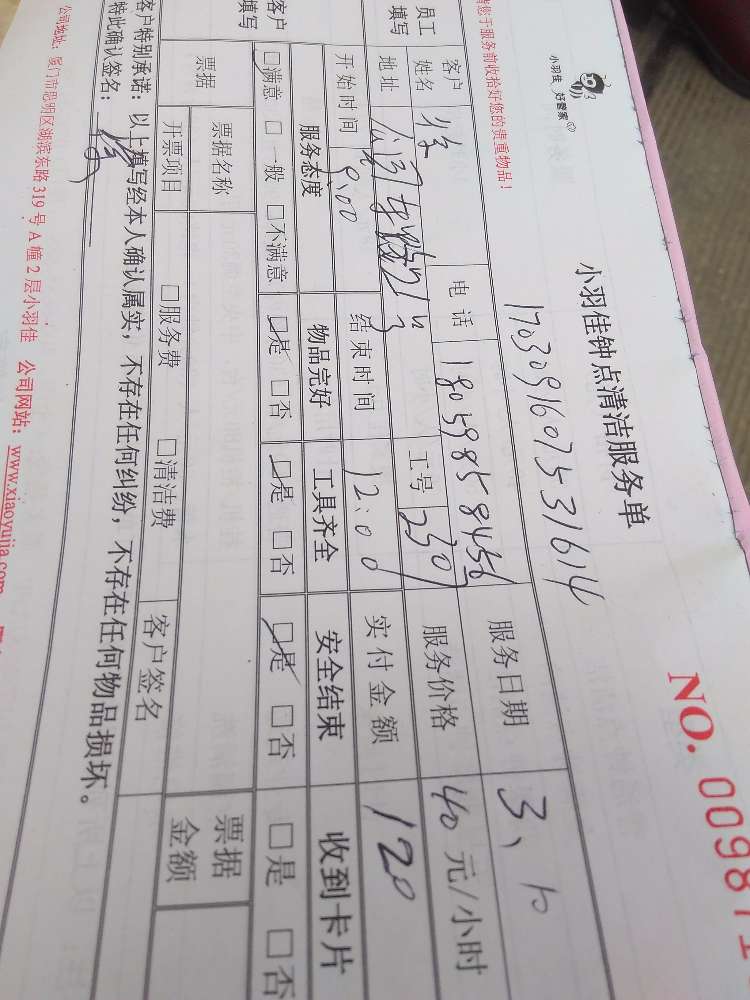 小羽佳 好管家
小羽佳钟点清洁服务单
NO. 00987
请您于服务前收拾好您的贵重物品!
1703091607531614
员工填写
客户姓名 电话 18059858456 服务日期 3、10
地址 工号 2309 服务价格 40元/小时
开始时间 9:00 结束时间 12:00 实付金额 120
客户填写
服务态度 物品完好 工具齐全 安全结束 收到卡片
□满意 □一般 □不满意 □是 □否 □是 □否 □是 □否 □是 □否
票据 票据名称 □服务费 □清洁费 票据金额
开票项目 客户签名
客户特别承诺:以上填写经本人确认属实,不存在任何纠纷,不存在任何物品损坏。
特此确认签名:
公司地址:厦门市思明区湖滨东路319号A幢2层小羽佳 公司网站:www.xiaoyujia.com